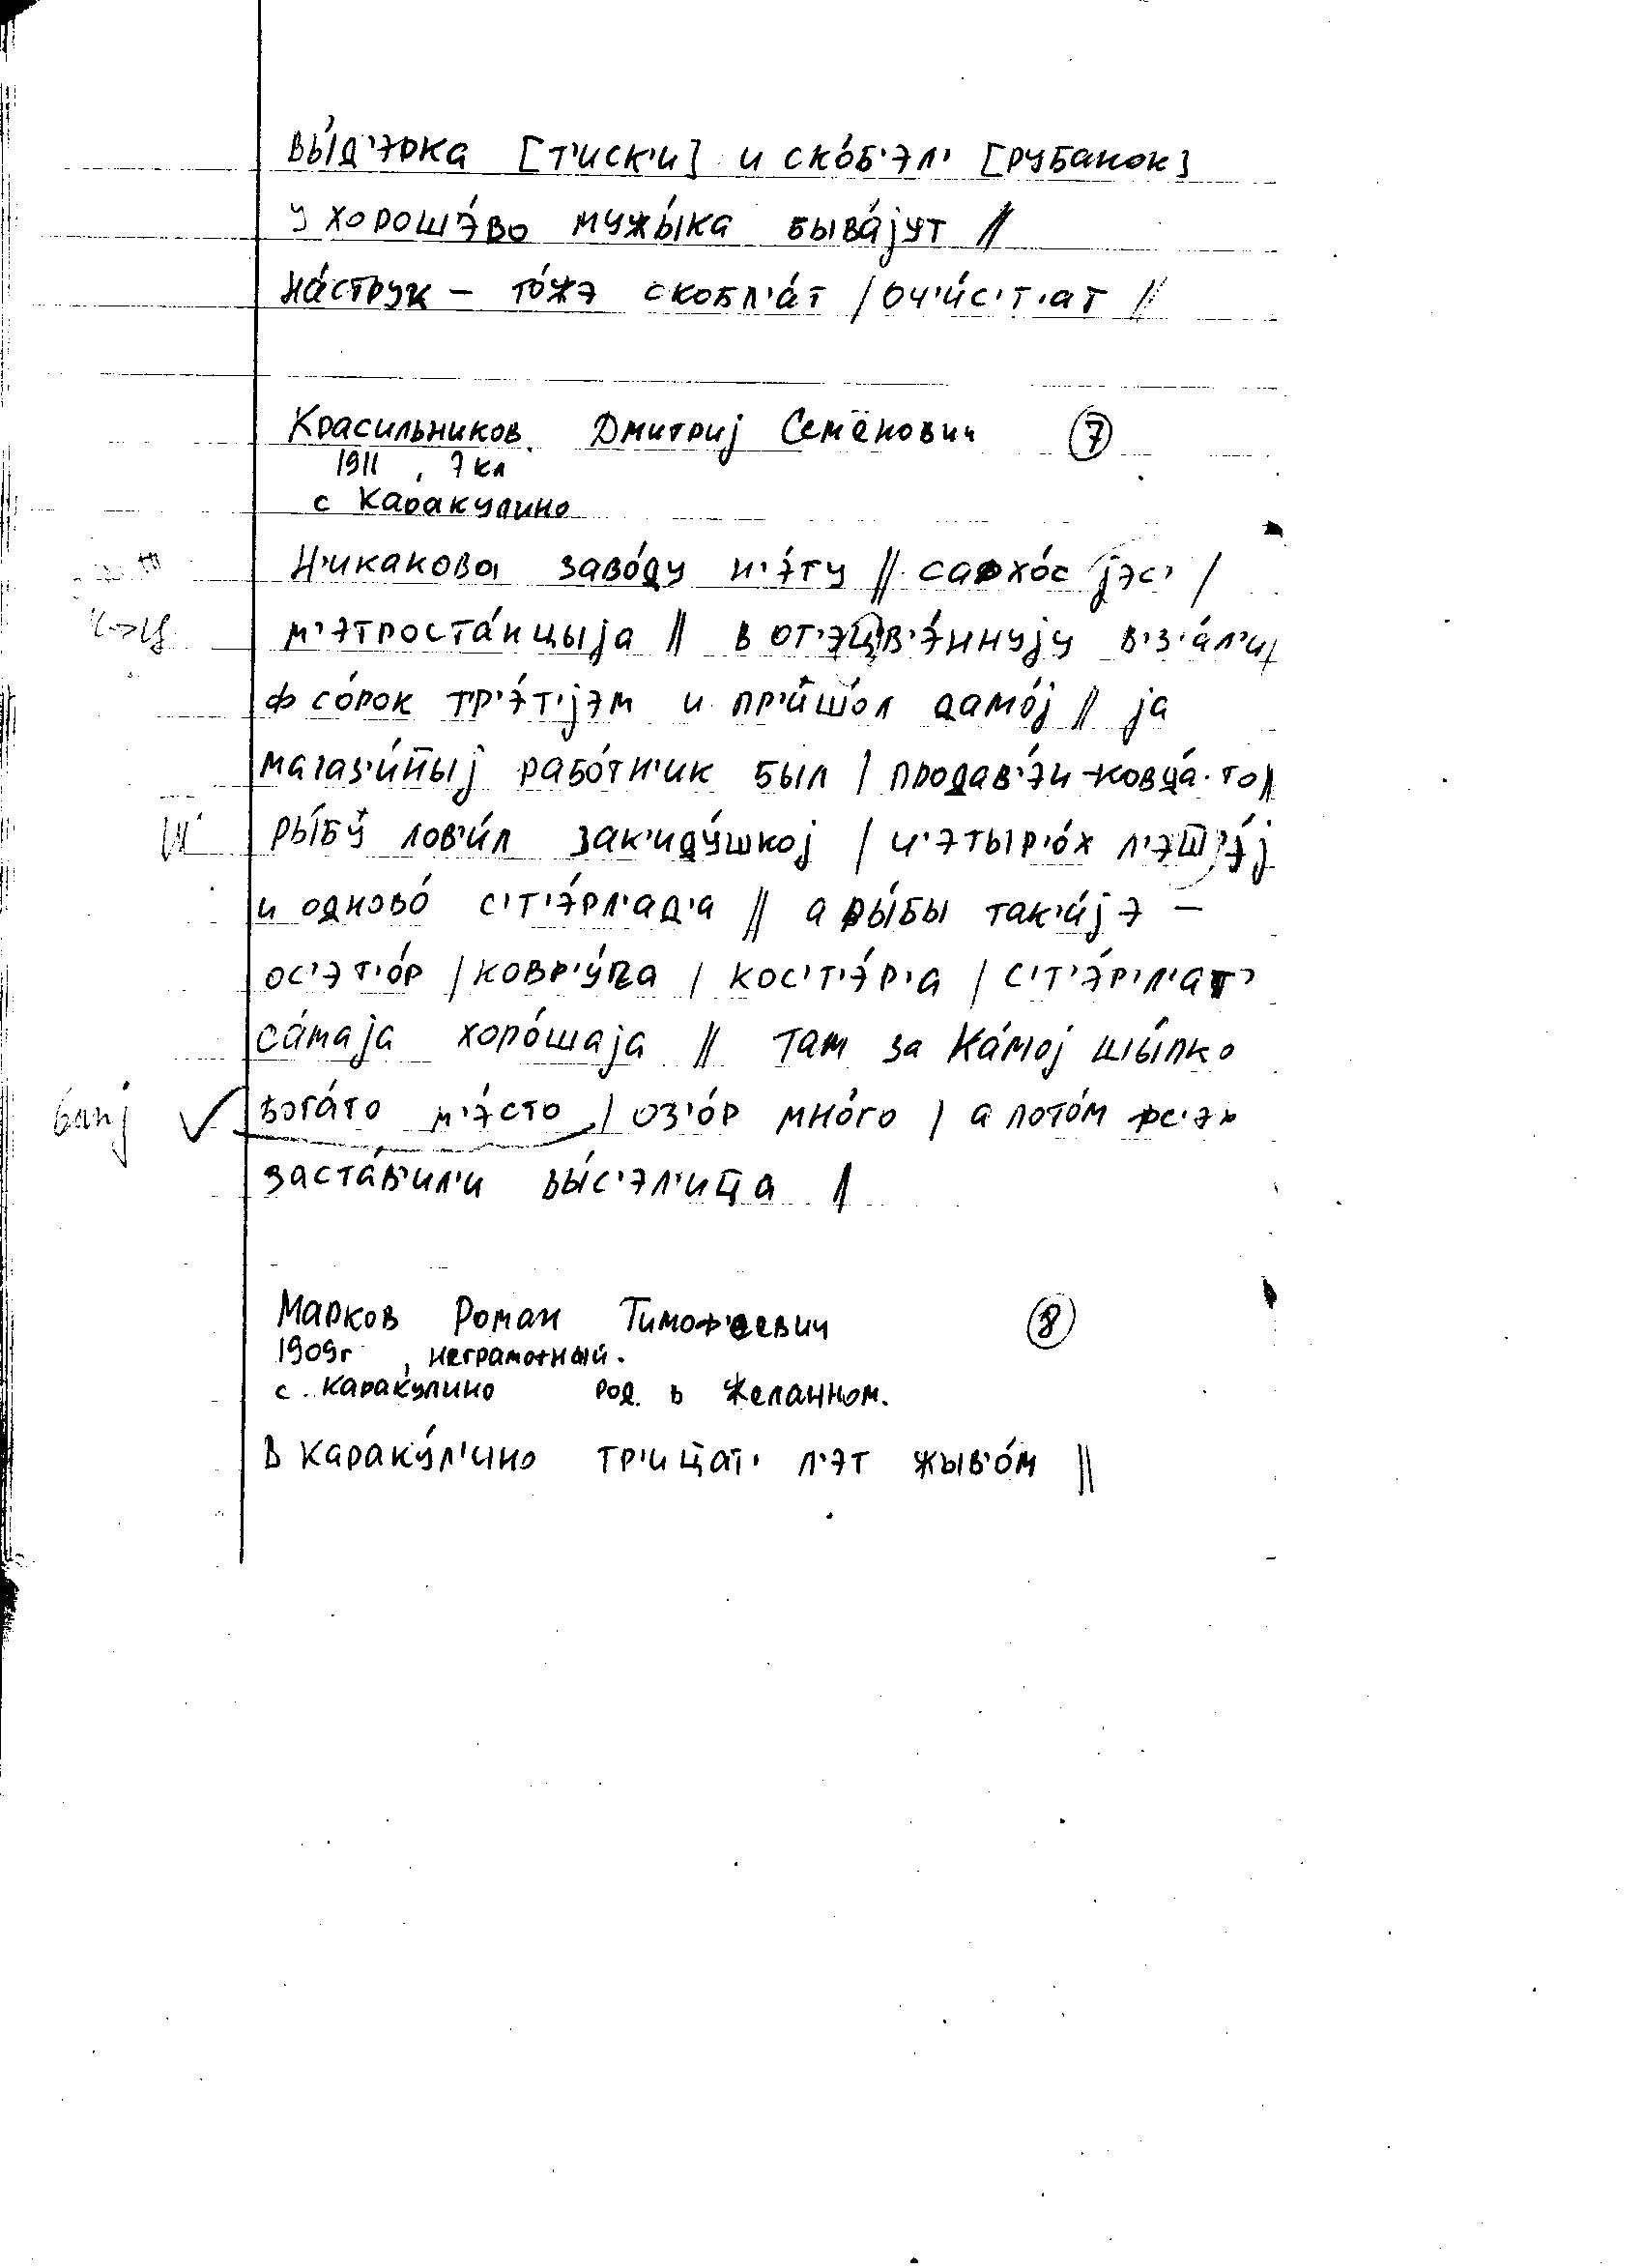 вы́д'эрка [т'иск'и] и ско́б'эл' [рубанок]
у хорошэ́во мужы́ка быва́јут //
на́струк – то́жэ скобл'а́т / оч'и́с'т'ат //
Красильников Дмитриј Семёнович 7
1911, 7 кл
с Каракулино
н'икакова заво́ду н'э́ту // сафхо́с јэс' /
м'этроста́нцыја // в от'эцв'э́ннују в'з'а́л'и
ф со́рок тр'э́т'јэм и пр'ишо́л дамо́ј // ја
магаз'и́ныј рабо́тн'ик был / продав'э́н
ры́бу лов'и́л зак'иду́шкој / ч'этыр'о́х л'эш'э́ј
и одново́ с'т'э́рл'ад'а // а ры́бы так'и́јэ –
ос'эт'о́р / ковр'у́га / кос'т'э́р'а / с'т'э́р'л'ат'
са́маја хоро́шаја // там за Ка́мој шы́пко
бога́то м'э́сто / оз'о́р мно́го / а пото́м фс'эх
заста́в'ил'и вы́с'эл'ица //
ч→ц
ш'
Марков Роман Тимофеевич 8
1909г, неграмотный.
с. Каракулино род. в Желанном.
в Караку́л'ино тр'ицат' л'эт жыв'о́м //